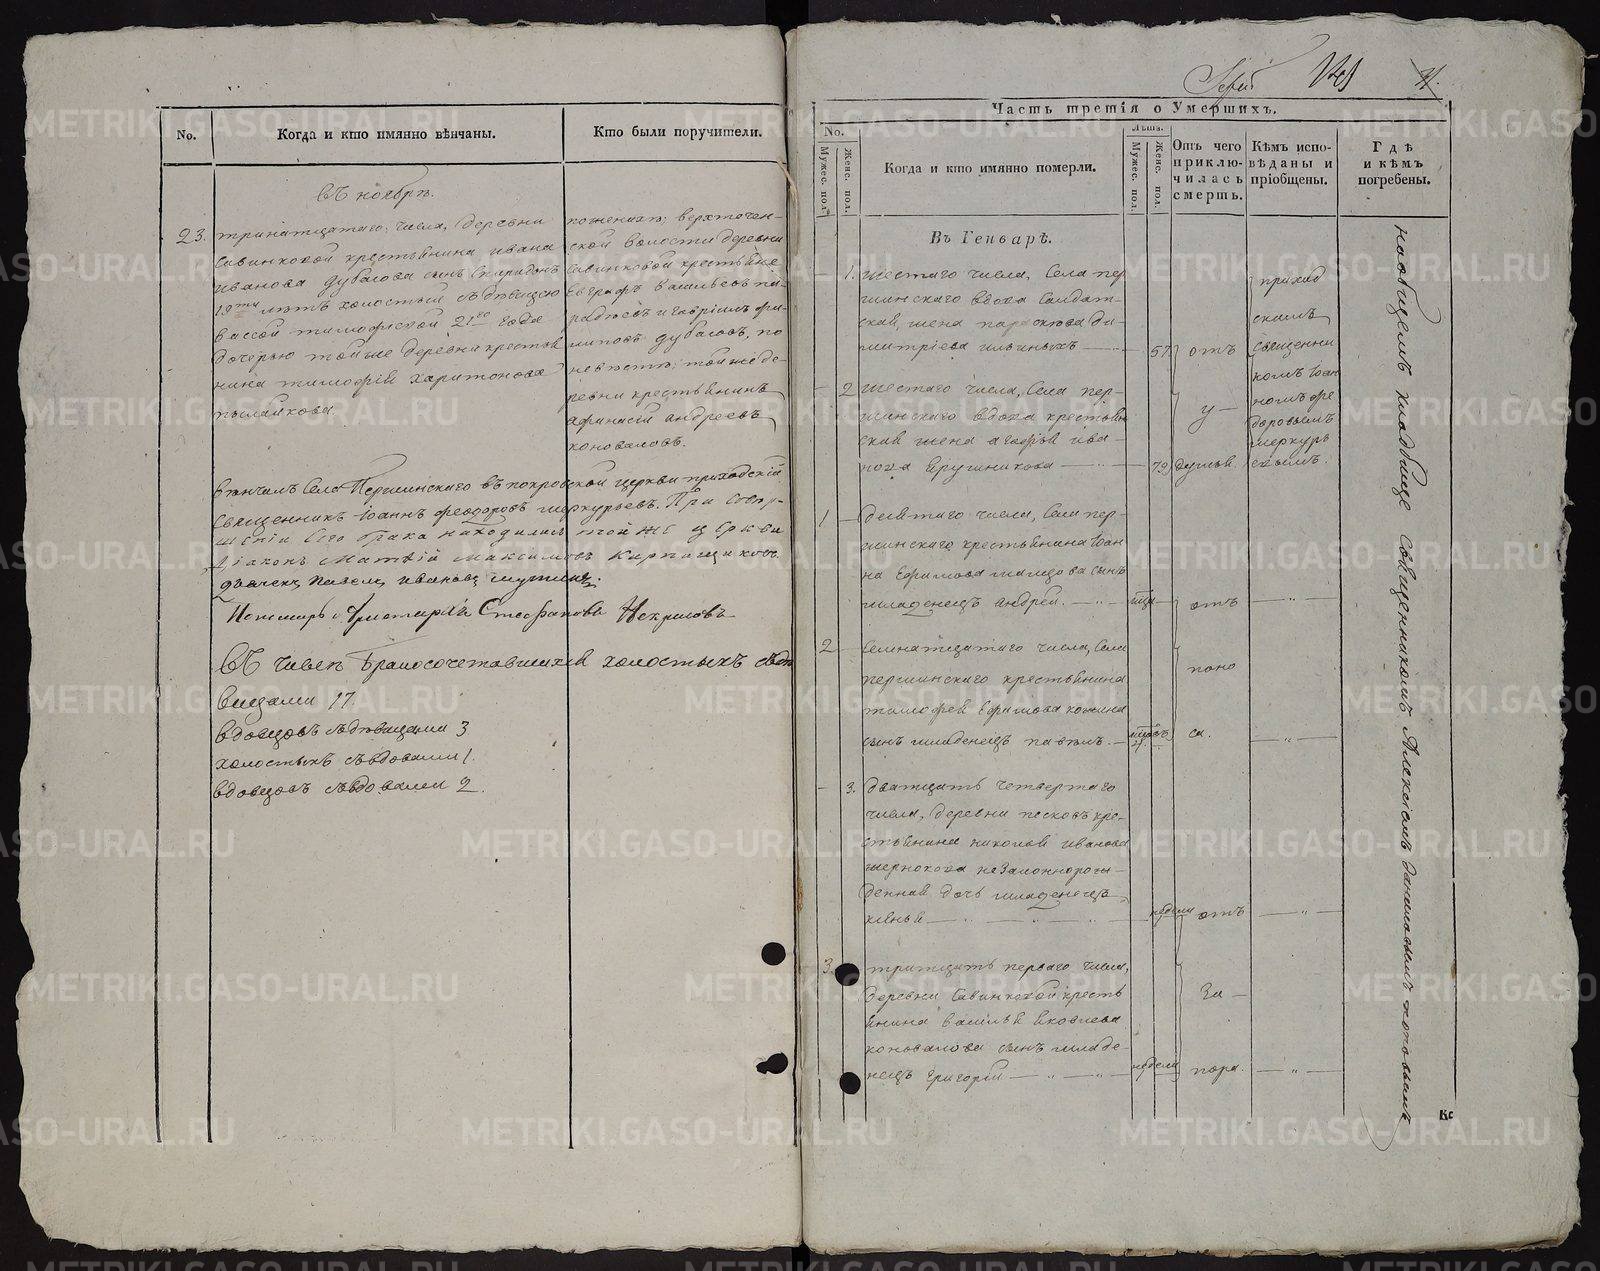 No.
Когда и кто имянно вѣнчаны.
Кто были поручители.
въ ноябрѣ.
23.
тринатцатаго, числа, деревни
Савинковой крестьянина ивана
иванова дубасова сынъ Спиридонъ
19ти лѣтъ холостый съ дѣвицею
вассой тимофеевой 21го года
дочерью тойже деревни крестья
нина тимофѣя харитонова
по женихѣ; верхтечен-
ской волости деревни
Савинковой крестьяне
Евграфъ васильевъ
и гаврiилъ фи-
липовъ дубасовъ, по
невѣстѣ; тойже де-
ревни крестьянинъ
афанасiй андреевъ
коноваловъ.
вѣнчалъ Села Першинскаго въ покровской церкви приходскiй
Священникъ Iоаннъ феодоровъ меркурьевъ. При совер-
шенiи сего брака находились той же церкви
дiаконъ Матѳiй Максимовъ
дьячекъ павелъ ивановъ
Пономарь Аристархiй Стефановъ Некрасовъ
въ числѣ бракосочетавшихся холостыхъ съ дѣ
вицами 17
вдовцовъ съ дѣвицами 3
холостыхъ съ вдовами 1.
вдовцовъ съ вдовами 2.
Часть третiя о Умершихъ.
No.
Мужес. пол.
Женс. пол.
Когда и кто имянно померли.
Лѣта.
Мужес. пол.
Женс. пол.
Отъ чего приклю-чилась смерть.
Кѣмъ испо-вѣданы и прiобщены.
Гдѣ и кѣмъ погребены.
Въ Генварѣ.
1. шестаго числа, Села пер
шинскаго вдова Салдат-
ская, жена параскева ди-
митрiева ильиныхъ 57. отъ
приход
скимъ
священни
комъ Iоан
номъ фе
доровымъ
меркурь
евымъ.
2 шестаго числа, Села пер-
шинскаго вдова крестьян
ская жена агафья ива-
нова кружникова 79 у
душья.
1 девятаго числа, Села пер-
шинскаго крестьянина Iоан
на Ефимова сынъ
младенецъ андрей. отъ
2 семнатцатаго числа, Села
першинскаго крестьянина
тимофея ефимова кожина
сынъ младенецъ павелъ. поно
са.
3. дватцать четвертаго
числа, деревни песковъ кре-
стьянина николая иванова
незаконнорож-
денная дочь младенецъ
ксенья недели отъ
3 тритцать перваго числа,
деревни Савинковой кресть
янина василья яковлева
коновалова сынъ младе-
нецъ григорiй недели за-
пора.
на общемъ кладбище священникомъ Алексiемъ поповымъ